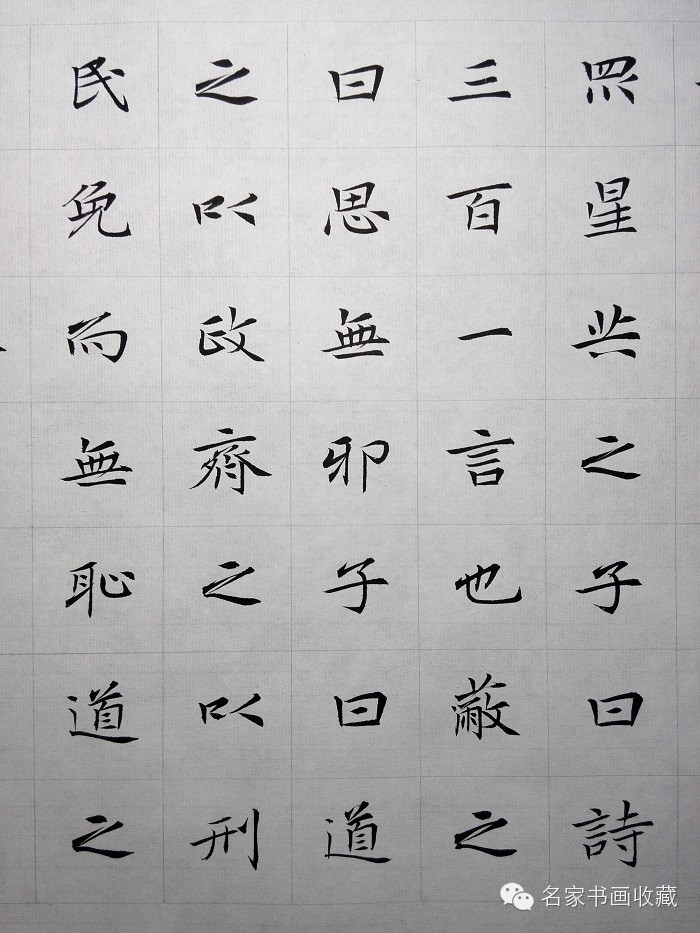 眾星共之子曰詩
三百一言也蔽之
曰思無邪子曰道
之以政齊之以刑
民免而無恥道之
名家书画收藏